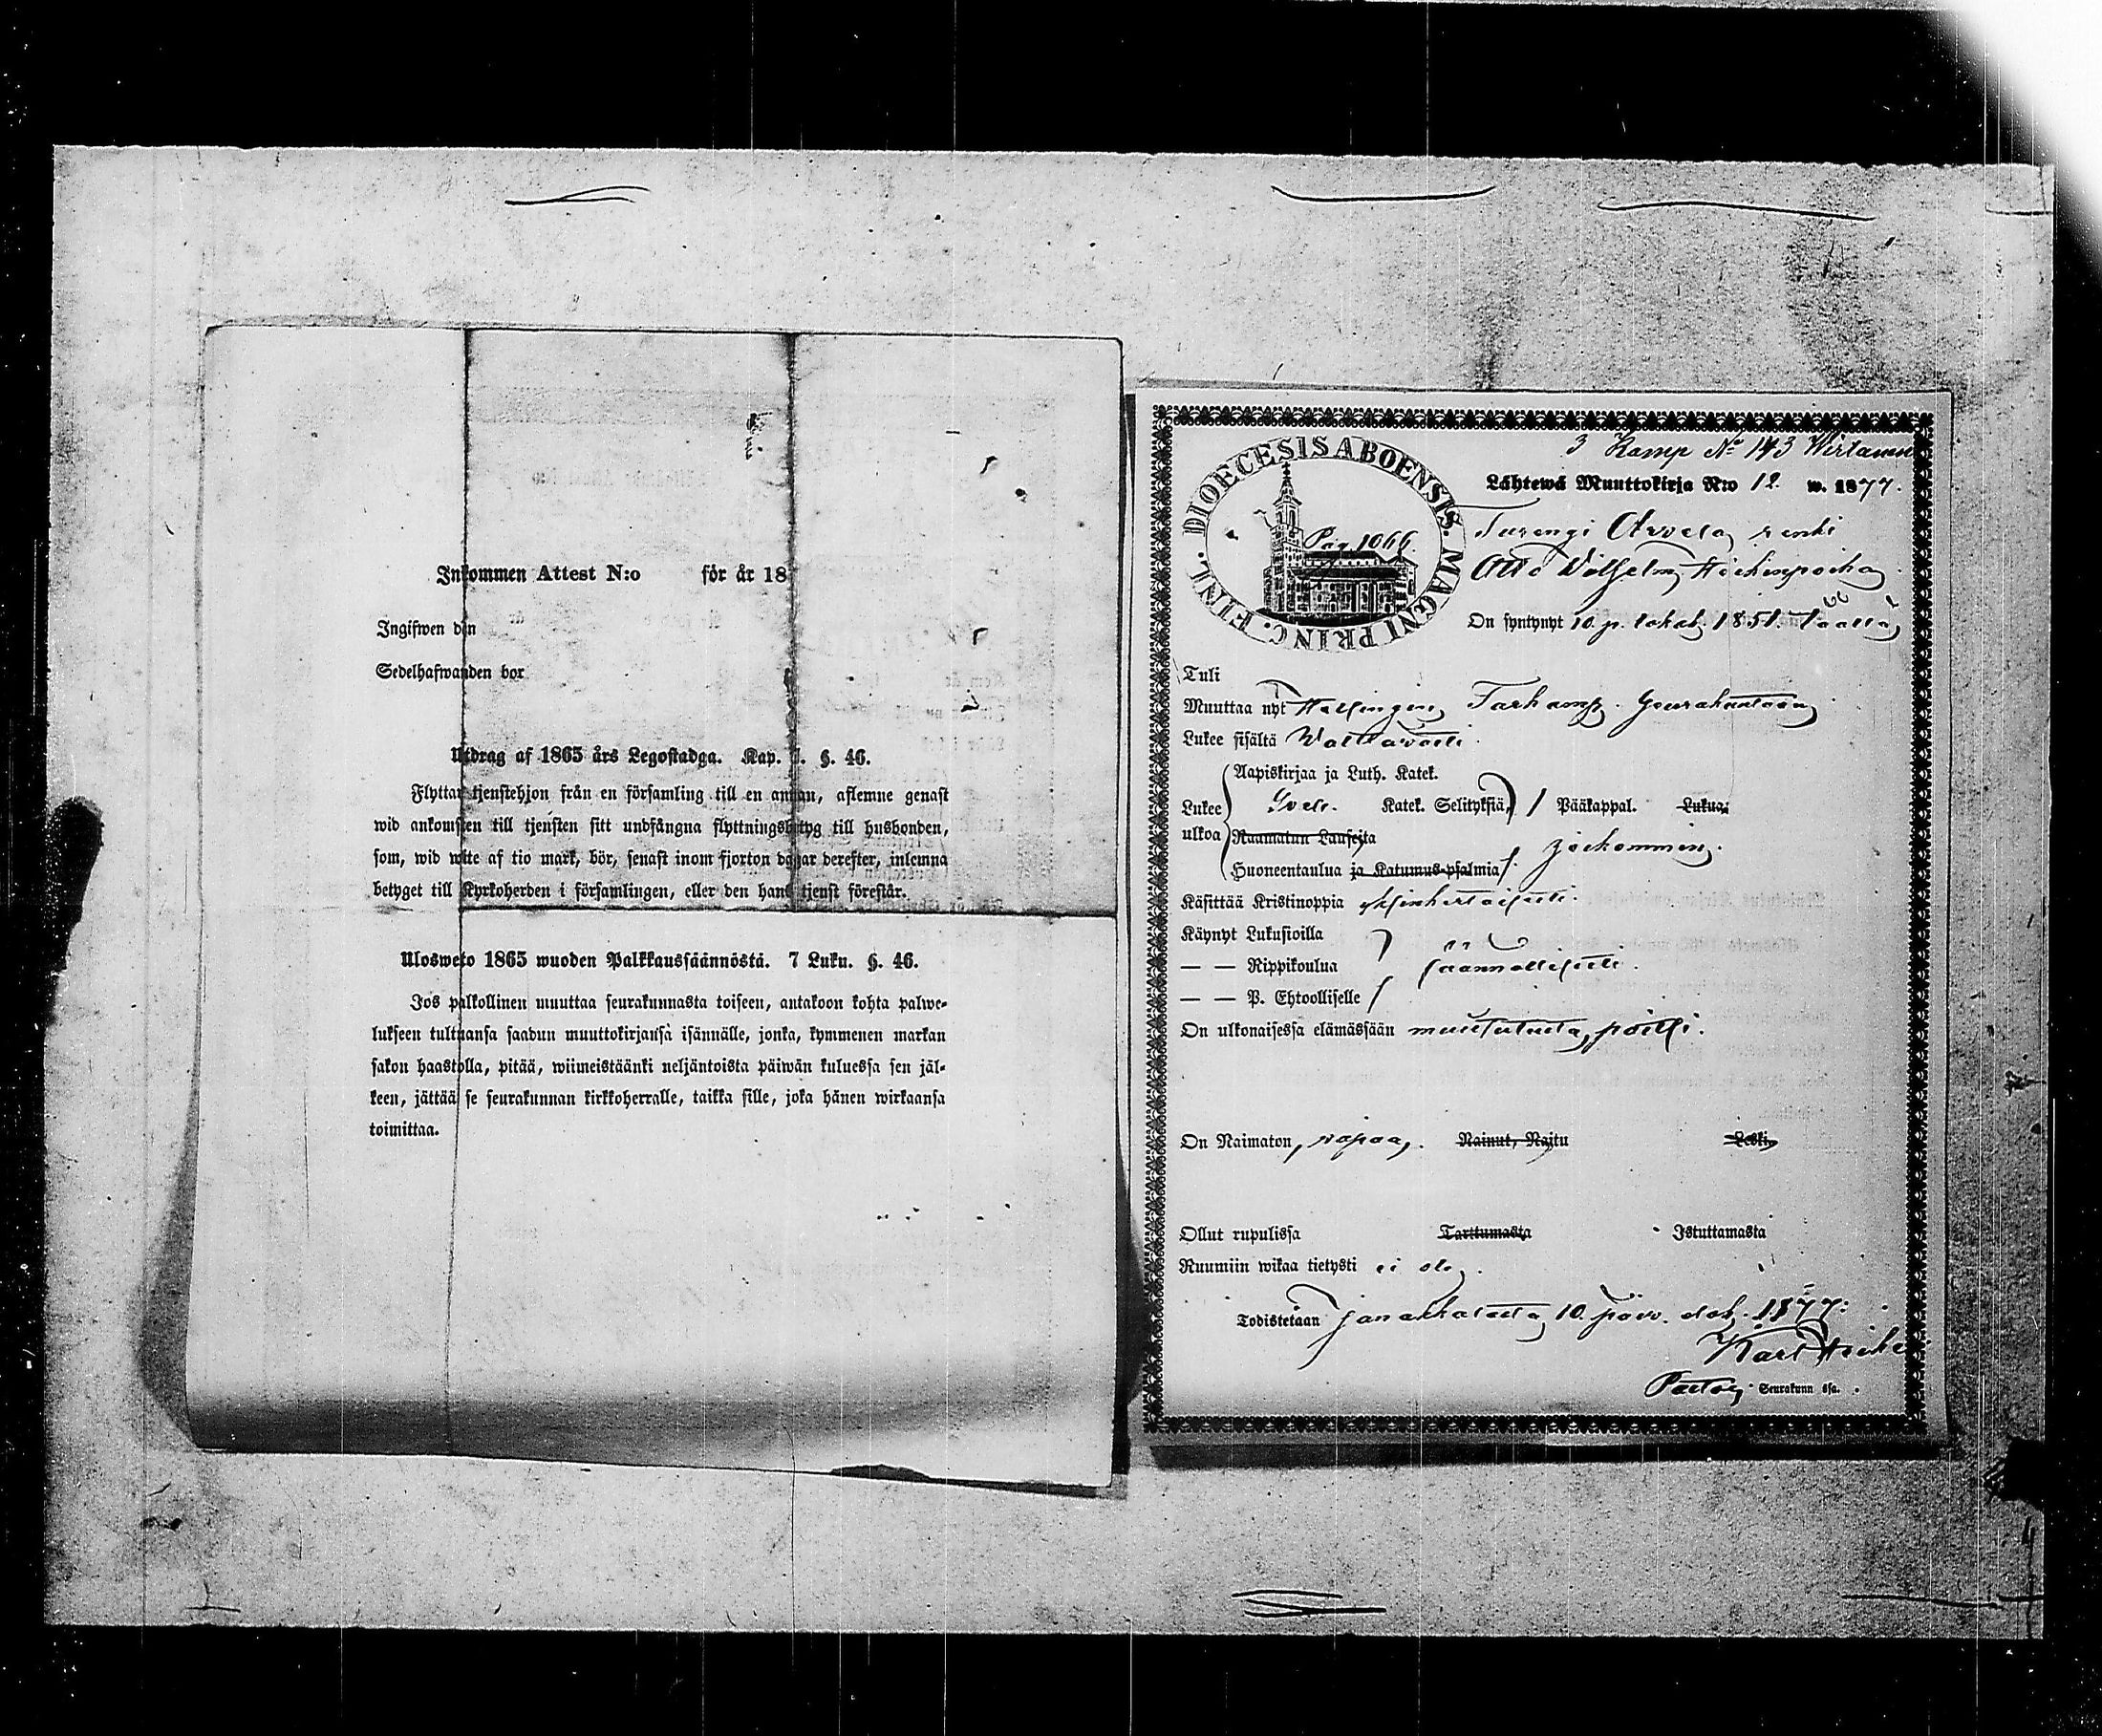 Inkommen Attest N:o för år 18
Ingifwen den
Sedelhafwanden bor
Utdrag af 1865 års Legostadga. Kap. §. 46.
Flyttar tjenstehjon från en församling till en annan, aflemne genast
wid ankomsten till tjensten sitt undfångna flyttningsbetyg till husbonden,
som, wid wite af tio mark, bör, senast inom fjorton dagar derefter, inlemna
betyget till Kyrkoherden i församlingen, eller den hans tjenst förestår.
Ulosweto 1865 wuoden Palkkaussäännöstä. 7 Luku. §. 46.
Jos palkollinen muuttaa seurakunnasta toiseen, antakoon kohta palwe-
lukseen tultuansa saadun muuttokirjansa isännälle, jonka, kymmenen markan
sakon haastolla, pitää, wiimeistäänki neljäntoista päiwän kuluessa sen jäl-
keen, jättää se seurakunnan kirkkoherralle, taikka sille, joka hänen wirkaansa
toimittaa.
3 Kamp No 143 Wirtanen
DIOECESIS ABOENSIS. MAGNI PRINC. FINL.
Pag 1066.
Lähtewä Muuttokirja N:o 12 w. 1877.
Turengi Arvela renki
Otto Wilhelm Heikinpoika
On syntynyt 10 p. lokak. 1851. Täällä
Tuli
Muuttaa nyt Helsingin Tarkamp. Seurakuntaan
Lukee sisältä Wälttäwästi.
Aapiskirjaa ja Luth. Katek.
Lukee Katek. Selityksiä, Pääkappal. Lukua;
ulkoa Raamatun Lauseita jotkommin.
Huoneentaulua ja Katumus-psalmia
Käsittää Kristinoppia yksinkertaisesti.
Käynyt Lukusioilla
— — Rippikoulua säännöllisesti.
— — P. Ehtoolliselle
On ulkonaisessa elämässään
On Naimaton, wapaa. Nainut, Naitu Leski,
Ollut rupulissa Tarttumasta Istuttamasta
Ruumiin wikaa tietysti ei ole.
Todistetaan Janakkalasta 10 päiw. lok. 1877.
Karl Heike
Pastor Seurakunn ssa.